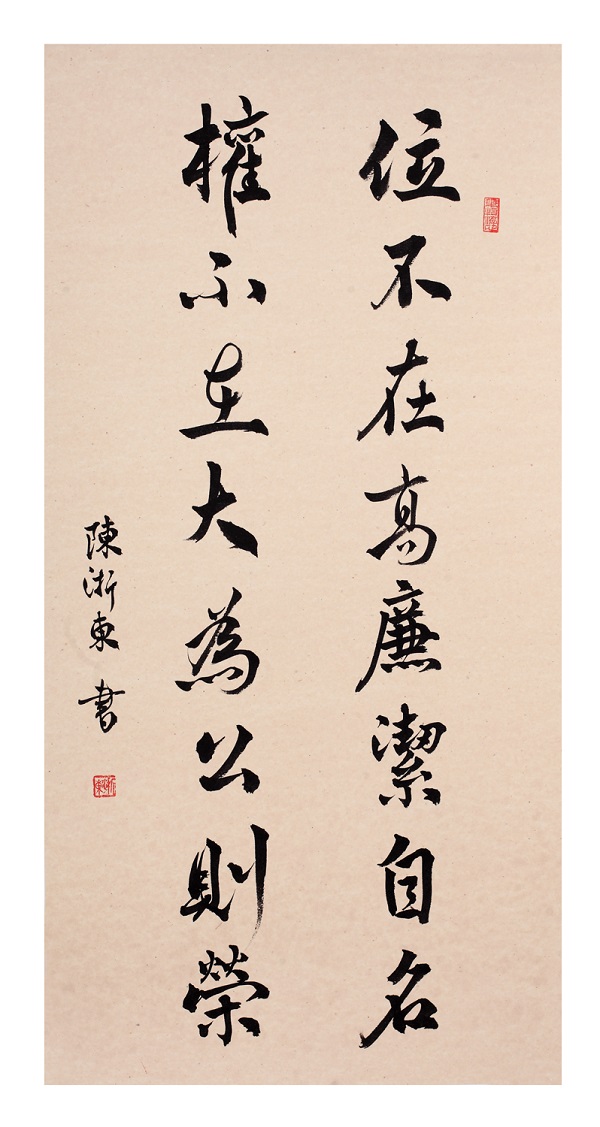 位不在高廉潔自名
權不在大為公則榮
陳浙東書